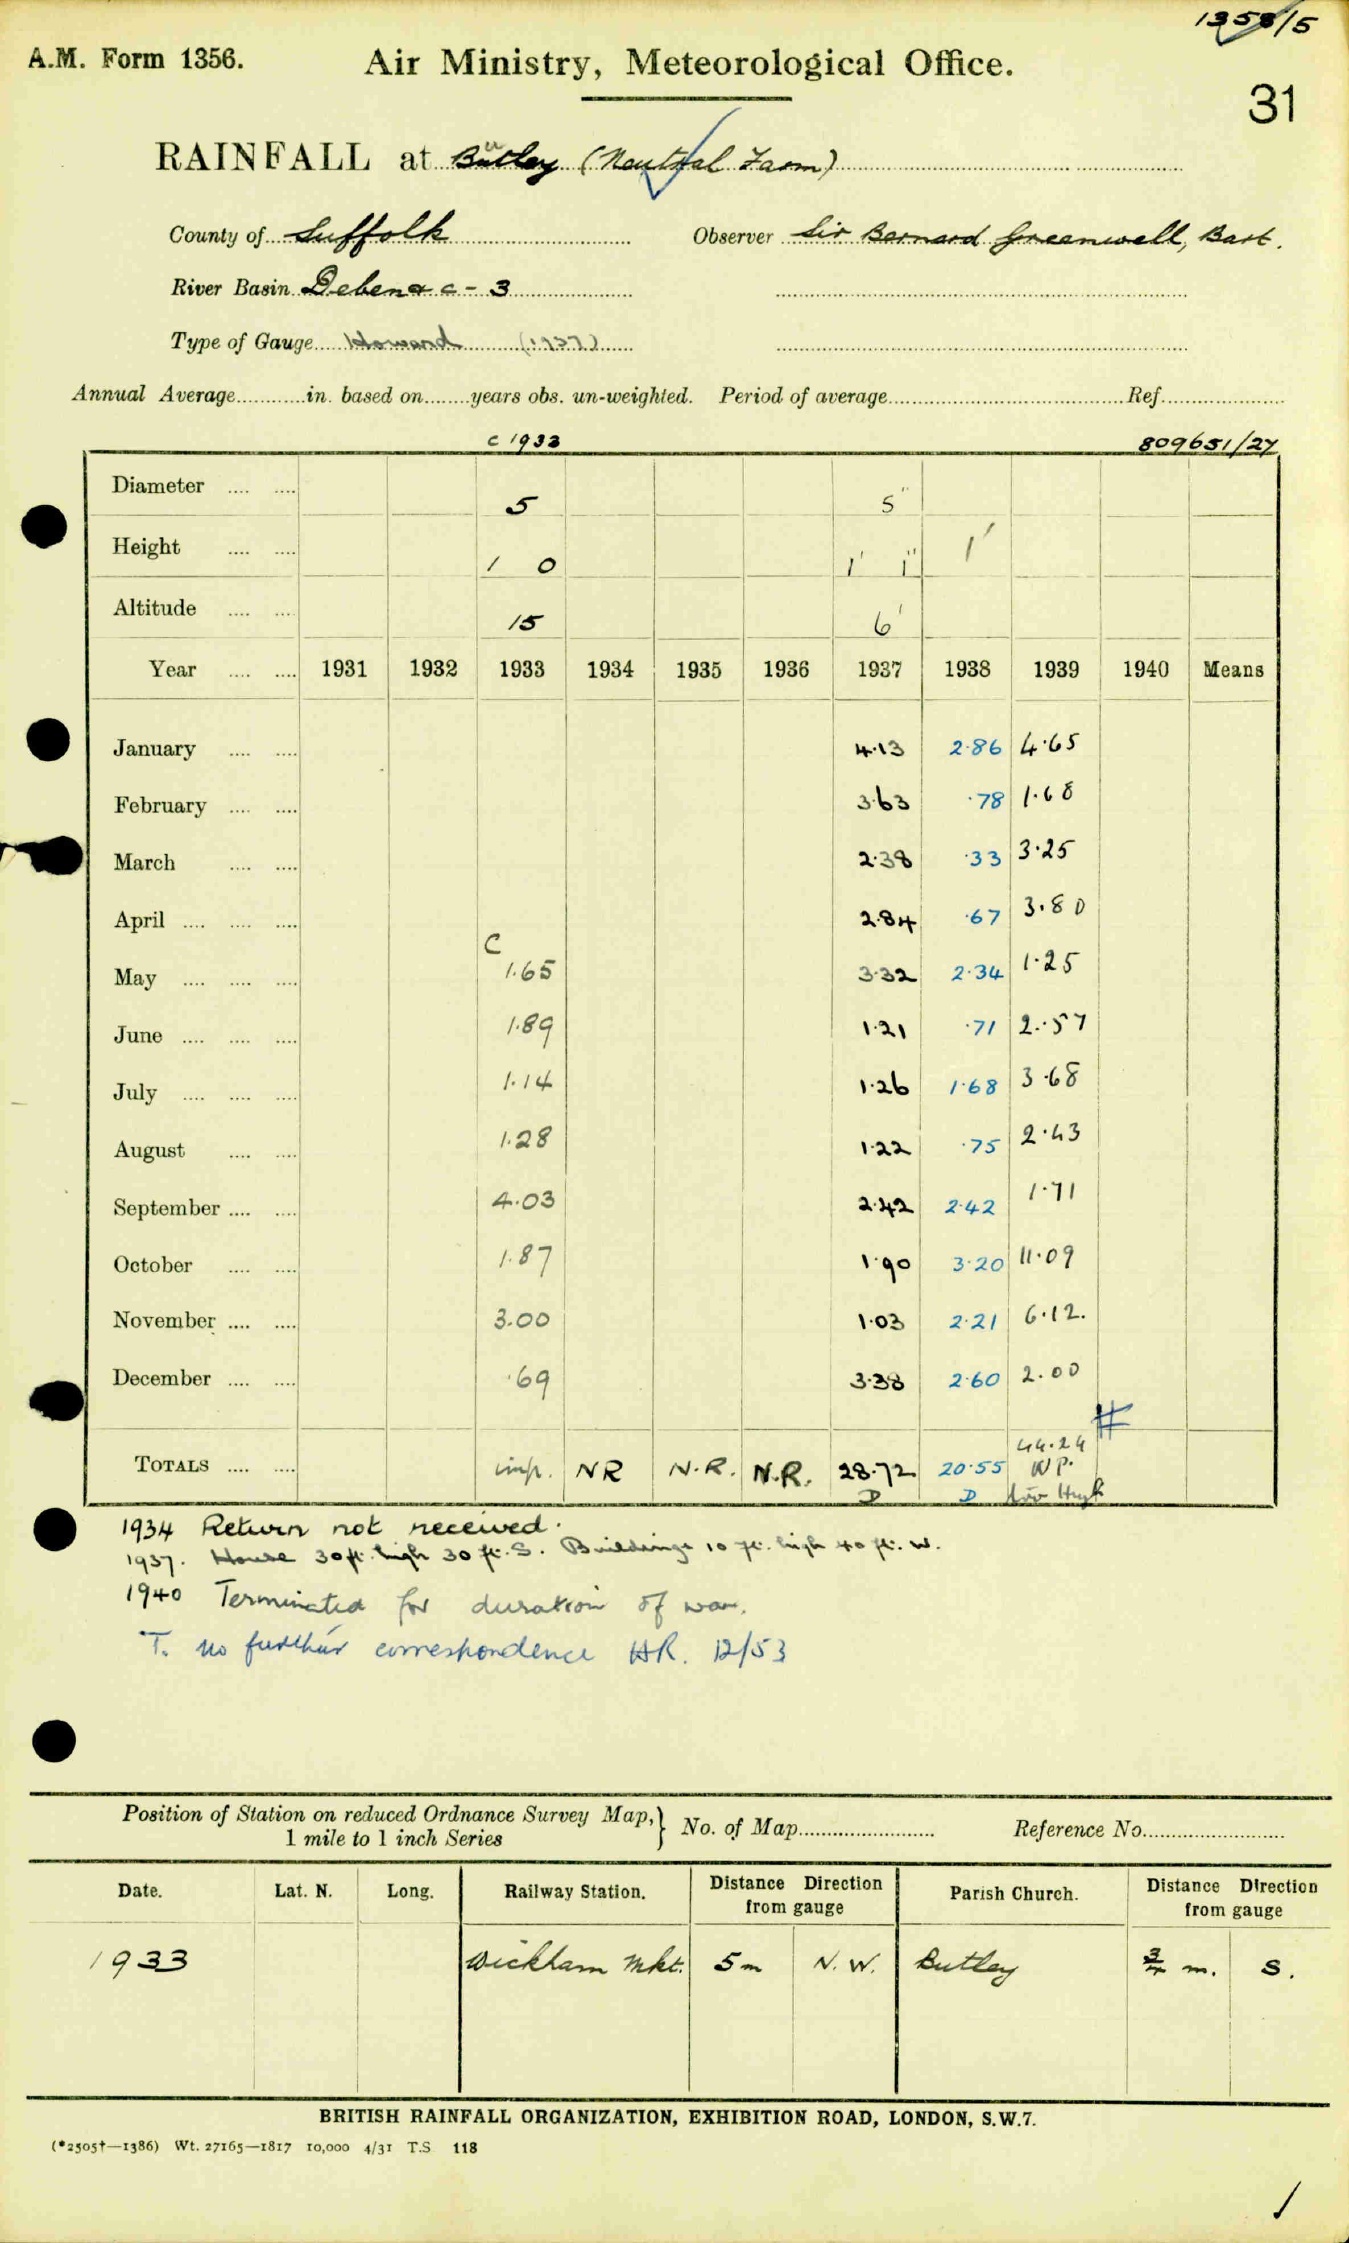 1358/5
A.M. Form 1356. Air Ministry, Meteorological Office.
31
RAINFALL at Butley (Neutral Farm)
County of Suffolk Observer Sir Bernard Greenwell, Bart.
River Basin Deben & c - 3
Type of Gauge Howard (1937)
Annual Average in. based on years obs. un-weighted. Period of average Ref.
c 1933 809651/27
Diameter 5 5"
Height 1 0 1' 1" 1'
Altitude 15 6'
Year 1931 1932 1933 1934 1935 1936 1937 1938 1939 1940 Means
January 4.13 2.86 4.65
February 3.63 .78 1.68
March 2.38 .33 3.25
April 2.84 .67 3.80
C
May 1.65 3.32 2.34 1.25
June 1.89 1.21 .71 2.57
July 1.14 1.26 1.68 3.68
August 1.28 1.22 .75 2.43
September 4.03 2.42 2.42 1.71
October 1.87 1.90 3.20 11.09
November 3.00 1.03 2.21 6.12.
December .69 3.38 2.60 2.00
#
44.24
TOTALS imp. NR N.R. N.R. 28.72 20.55 NP.
D D too High
1934 Return not received.
1937. House 30 ft. high 30 ft. S. Buildings 10 ft. high 40 ft. W.
1940 Terminated for duration of war.
T. no further correspondence HR. 12/53
Position of Station on reduced Ordnance Survey Map,} No. of Map Reference No.
1 mile to 1 inch Series
Date. Lat. N. Long. Railway Station. Distance Direction from gauge Parish Church. Distance Direction from gauge
1933 Wickham Mkt. 5 m N.W. Butley 3/4 m. S.
BRITISH RAINFALL ORGANIZATION, EXHIBITION ROAD, LONDON, S.W.7.
(*2505†—1386) Wt. 27165—1817 10,000 4/31 T.S 118